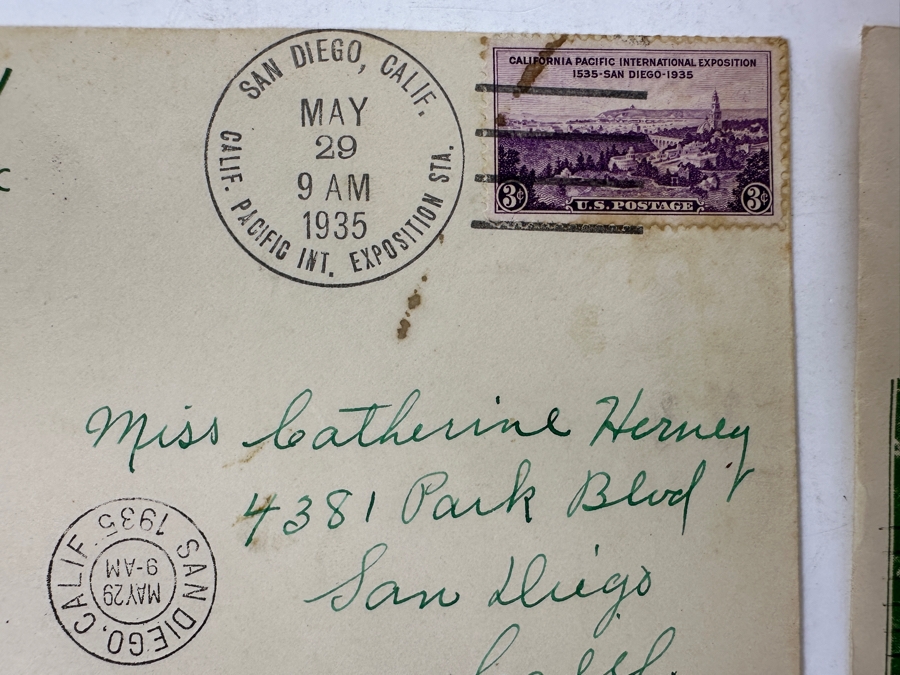 SAN DIEGO, CALIF.
MAY
29
9 AM
1935
CALIF. PACIFIC INT. EXPOSITION STA.
CALIFORNIA PACIFIC INTERNATIONAL EXPOSITION
1535-SAN DIEGO-1935
3¢ U.S. POSTAGE 3¢
Miss Catherine Herney
4381 Park Blvd
San Diego
Calif.
SAN DIEGO, CALIF
1935
MAY 29
9-AM